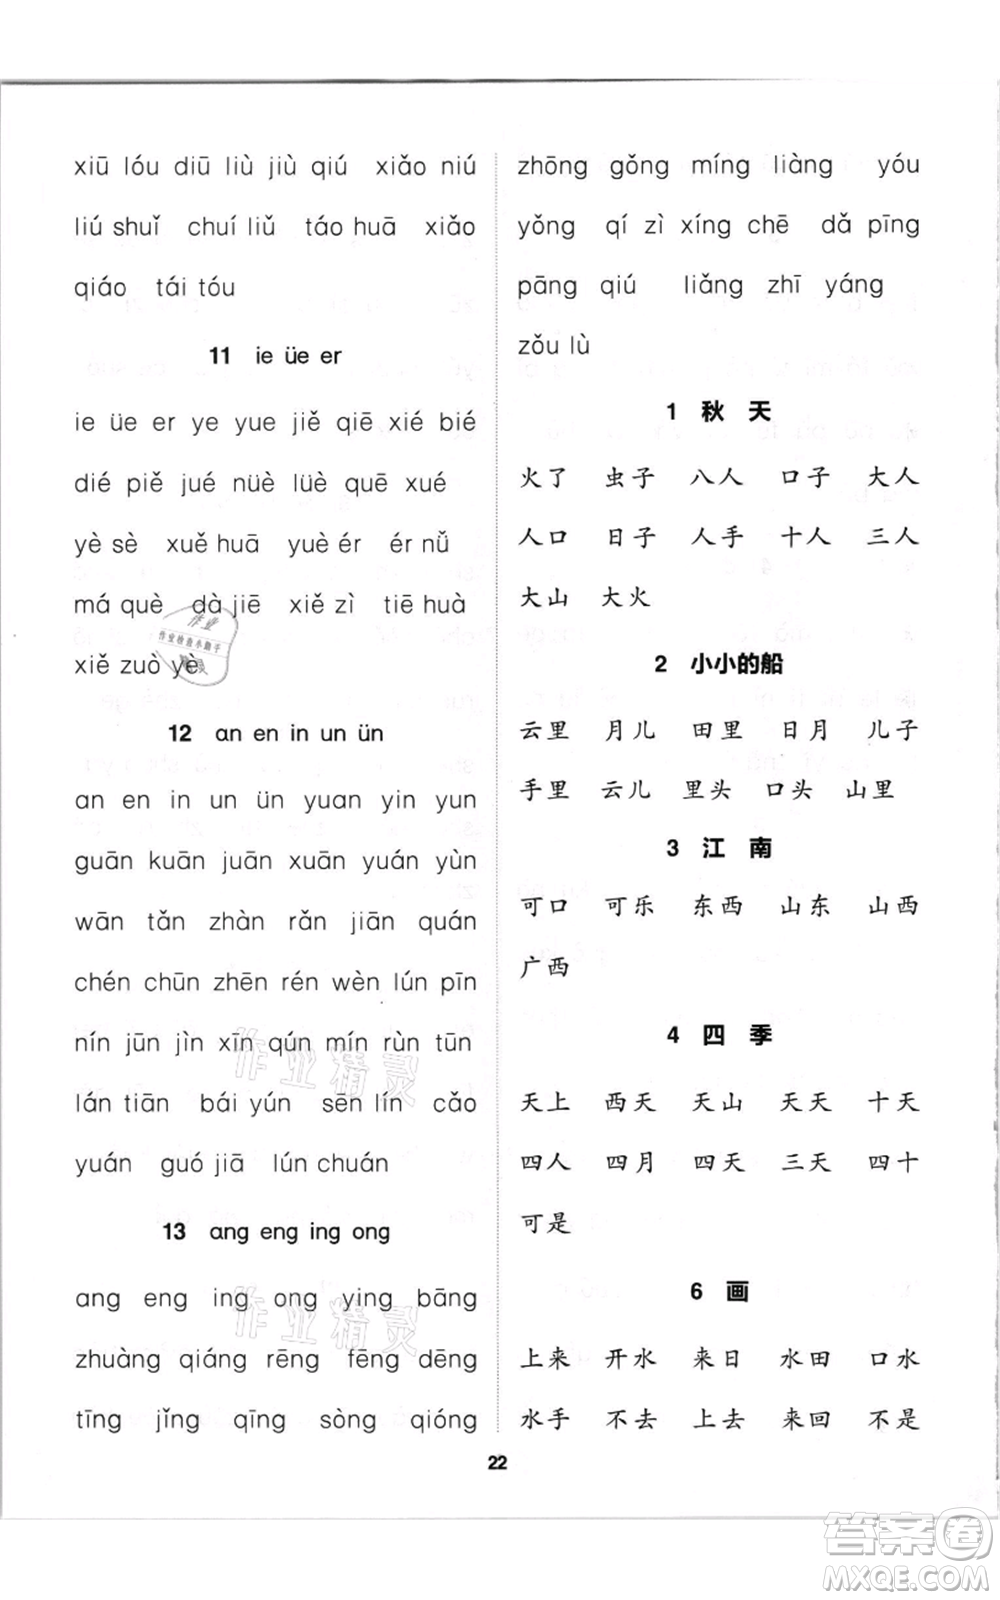 xiū lóu diū liù jiù qiú xiǎo niú
liú shuǐ chuí liǔ táo huā xiǎo
qiáo tái tóu
11 ie üe er
ie üe er ye yue jiě qiē xié bié
dié piě jué nüè lüè quē xué
yè sè xuě huā yuè ér ér nǚ
má què dà jiē xiě zì tiē huà
xiě zuò yè
作业
作业检查小助手
12 an en in un ün
an en in un ün yuan yin yun
guān kuān juān xuān yuán yùn
wān tǎn zhàn rǎn jiān quán
chén chūn zhēn rén wèn lún pīn
nín jūn jìn xīn qún mín rùn tūn
lán tiān bái yún sēn lín cǎo
yuán guó jiā lún chuán
作业精灵
13 ang eng ing ong
ang eng ing ong ying bāng
zhuàng qiáng rēng fēng dēng
tīng jǐng qīng sòng qióng
作业精灵
zhōng gǒng míng liàng yóu
yǒng qí zì xíng chē dǎ pīng
pāng qiú liǎng zhī yáng
zǒu lù
1 秋 天
火了 虫子 八人 口子 大人
人口 日子 人手 十人 三人
大山 大火
2 小小的船
云里 月儿 田里 日月 儿子
手里 云儿 里头 口头 山里
3 江 南
可口 可乐 东西 山东 山西
广西
4 四 季
天上 西天 天山 天天 十天
四人 四月 四天 三天 四十
可是
6 画
上来 开水 来日 水田 口水
水手 不去 上去 来回 不是
22
答案卷
MXQE.COM